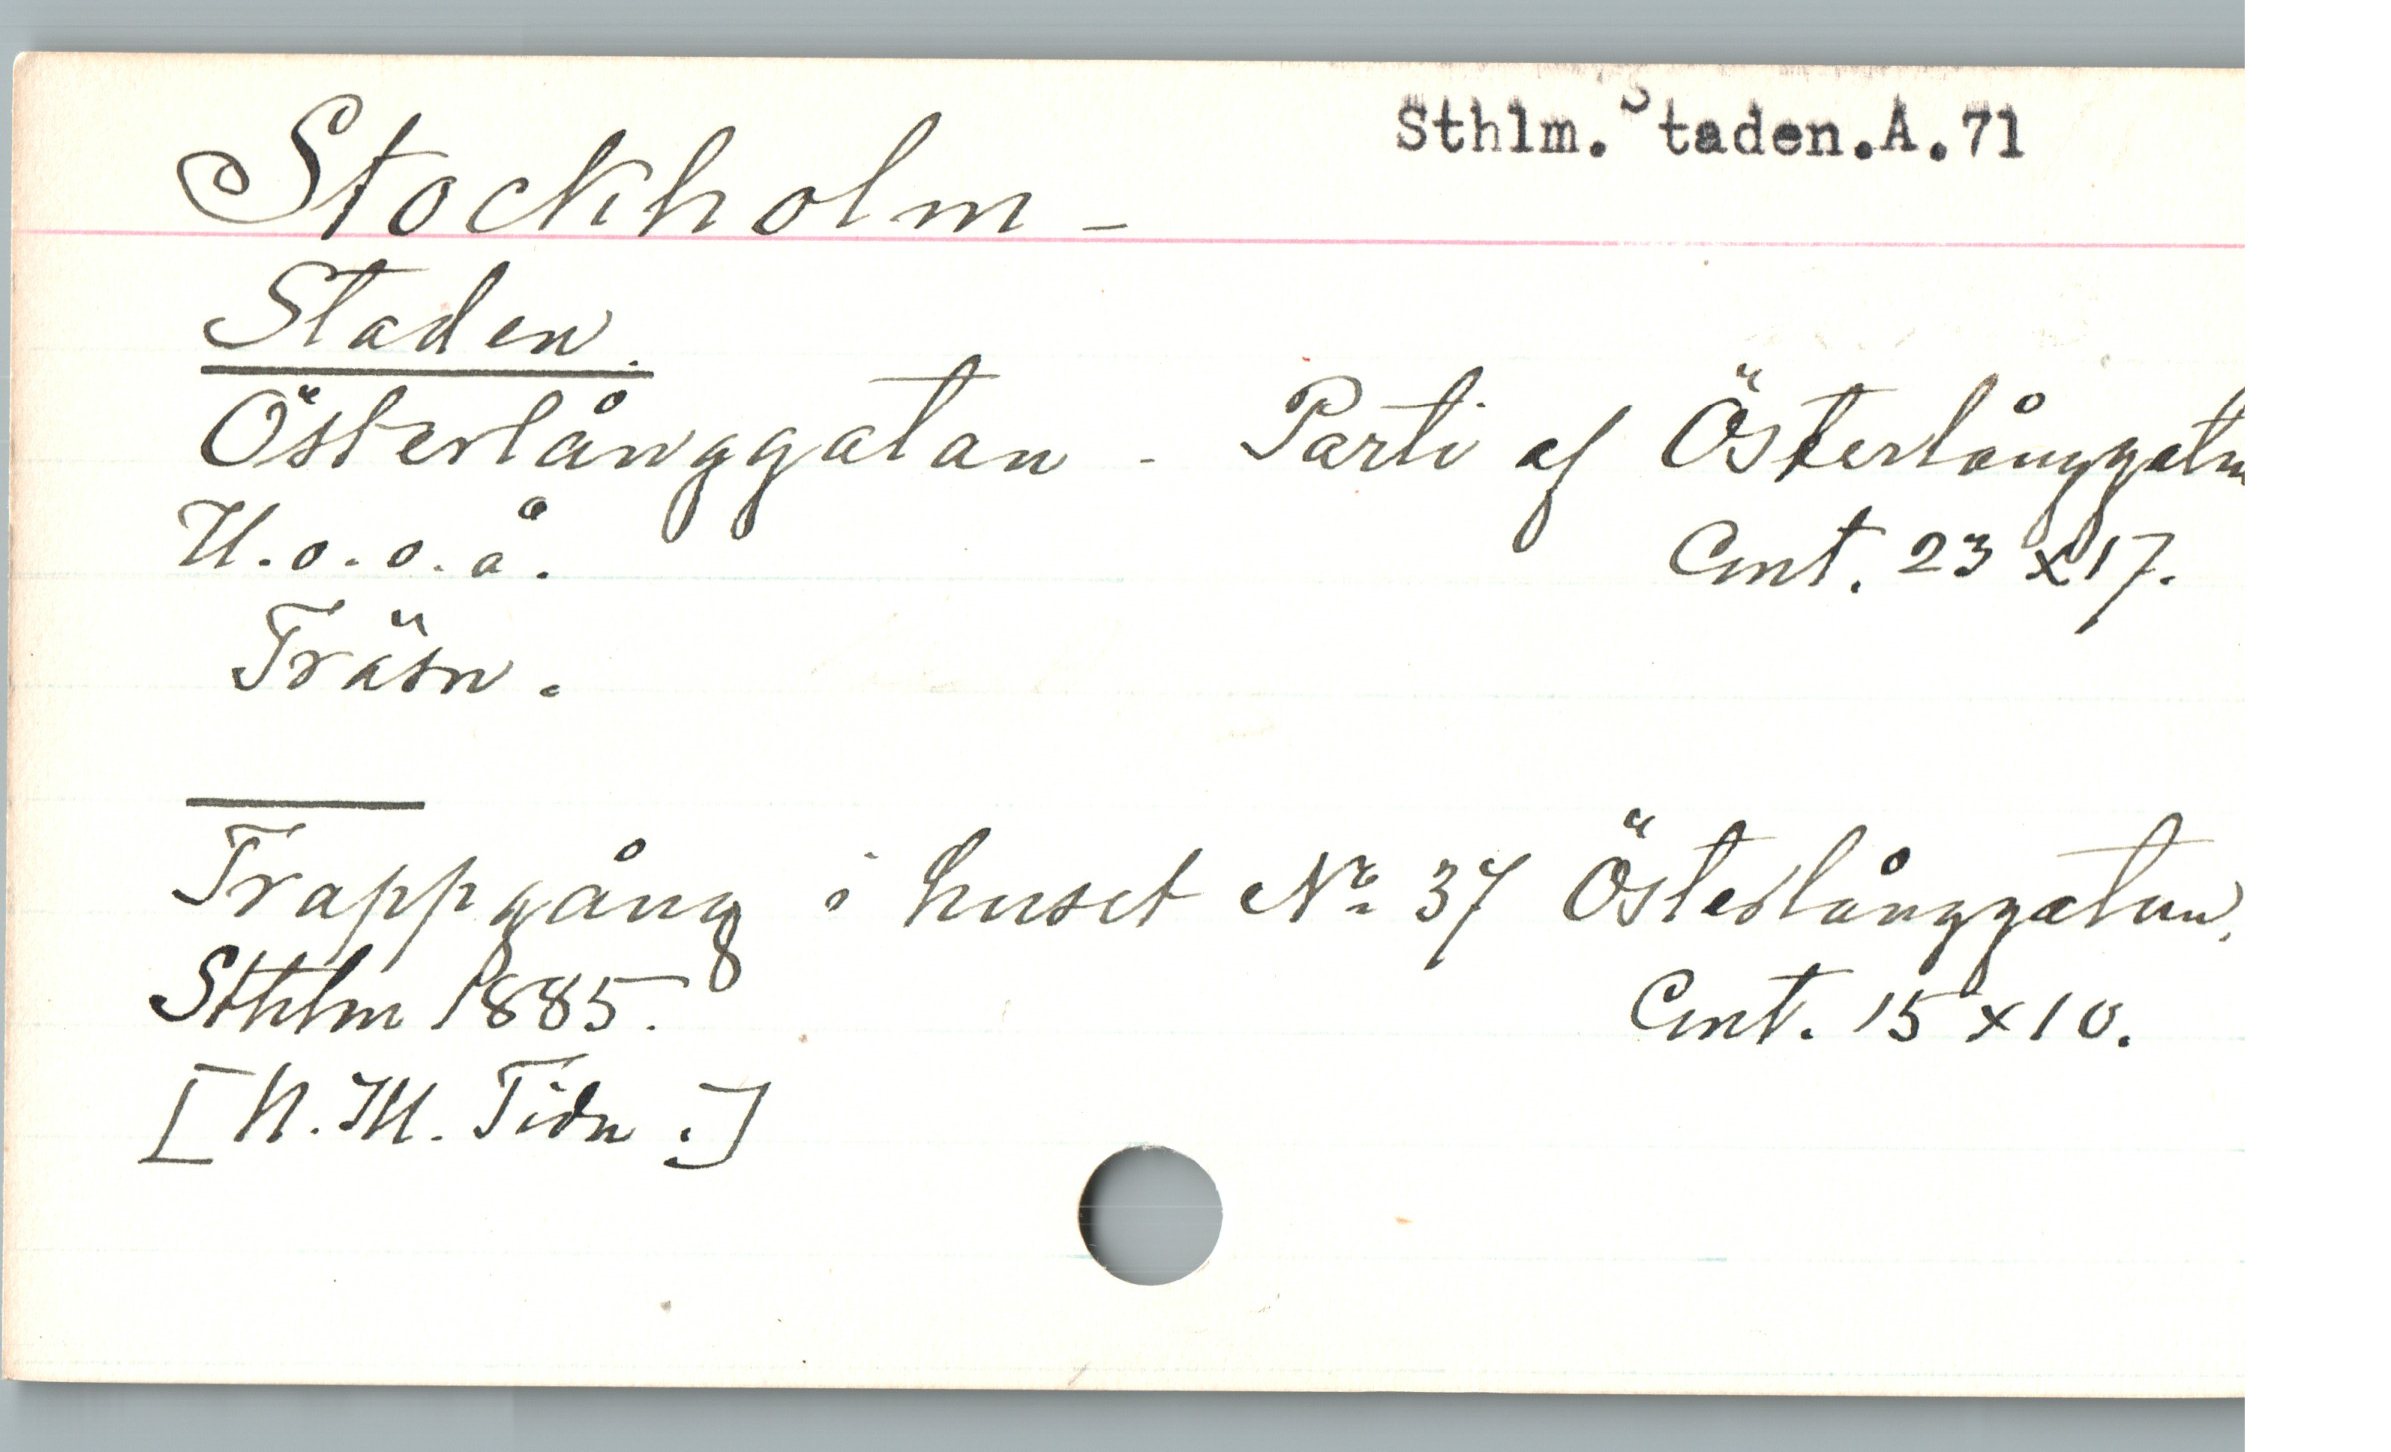 Sthlm. Staden.A.71
Stockholm -
Staden.
Österlånggatan - Parti af Österlånggatn
U.o.o.å. Cmt. 23 x 17.
Träsn.
Trappgång i huset No 37 Österlånggatan.
Sthlm 1885. Cmt. 15 x 10.
[N. Ill. Tidn.]